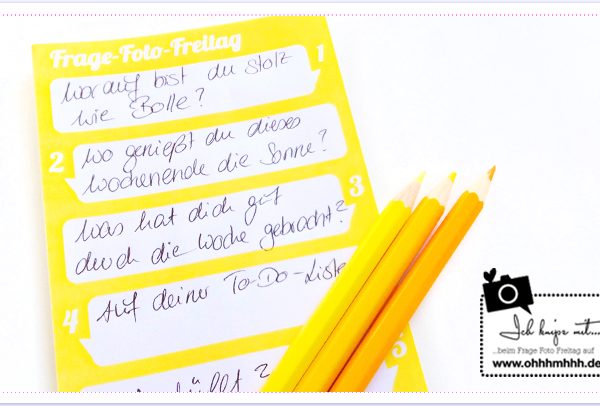 Frage-Foto-Freitag
1
Worauf bist du stolz
wie Bolle?
2
Wo genießt du dieses
Wochenende die Sonne?
3
Was hat dich gut
durch die Woche gebracht?
4
Auf deiner To-Do-Liste
5
Ich knips mit...
...beim Frage Foto Freitag auf
www.ohhhmhhh.de